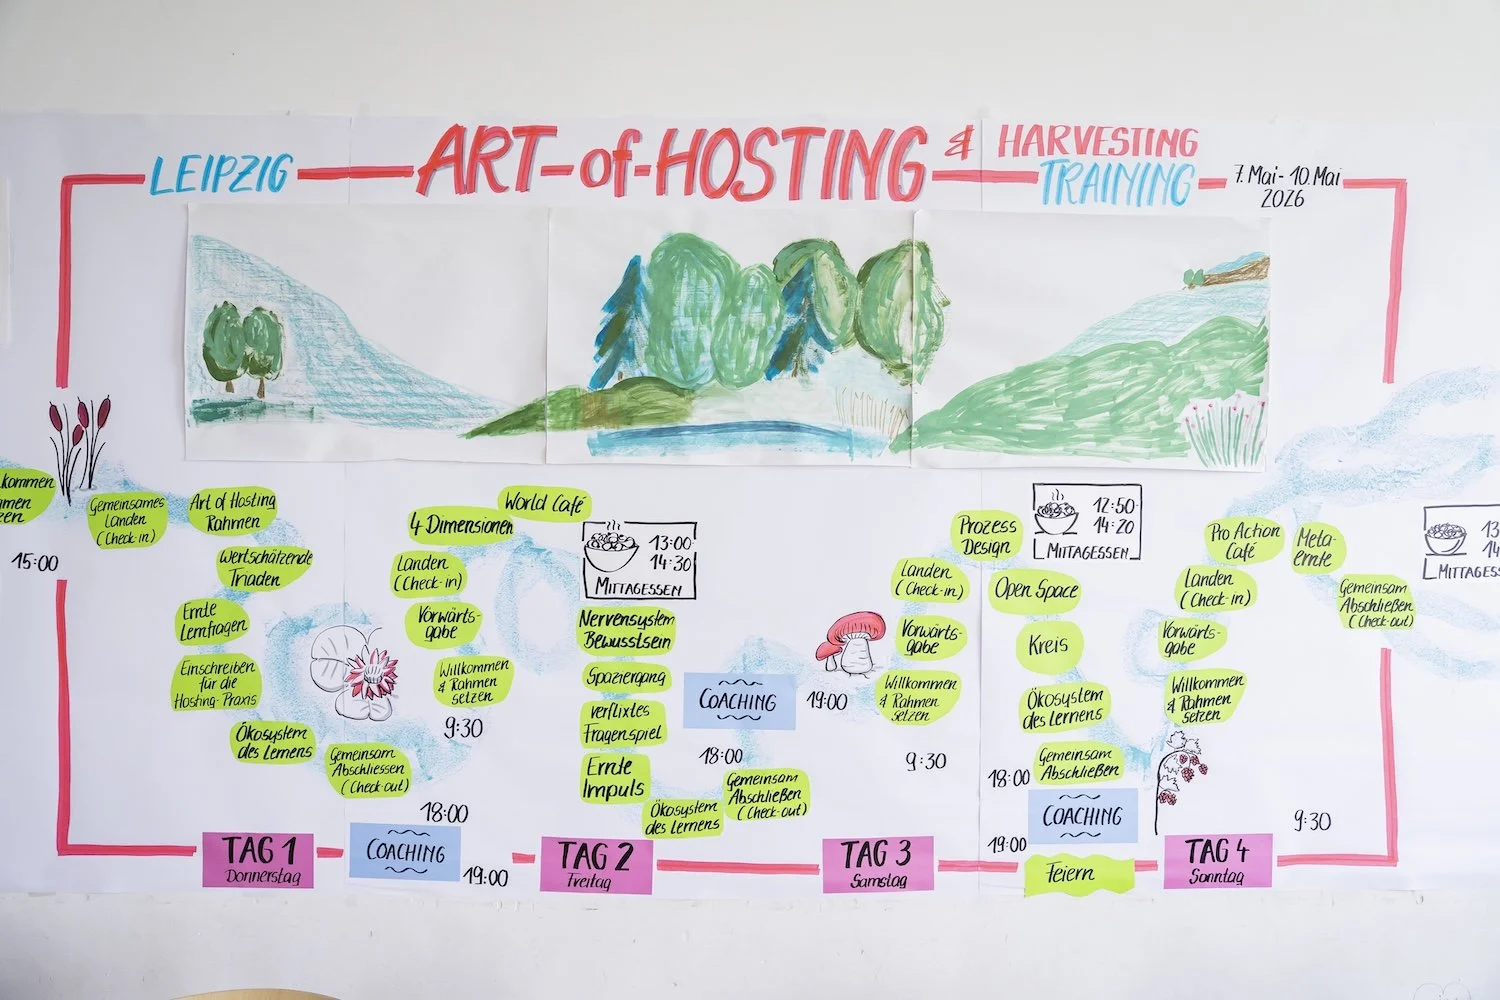 LEIPZIG
ART-of-HOSTING
& HARVESTING
TRAINING
7. Mai - 10. Mai
2026
15:00
Gemeinsames
Landen
(Check-in)
Art of Hosting
Rahmen
Wertschätzende
Triaden
Ernte
Lernfragen
Einschreiben
für die
Hosting-Praxis
Ökosystem
des Lernens
Gemeinsam
Abschliessen
(Check out)
18:00
COACHING
19:00
TAG 1
Donnerstag
9:30
Willkommen
& Rahmen
setzen
Vorwärts-
gabe
Landen
(Check-in)
4 Dimensionen
World Café
13:00
14:30
MITTAGESSEN
Nervensystem
Bewusstsein
Spaziergang
verflixtes
Fragenspiel
Ernte
Impuls
Ökosystem
des Lernens
Gemeinsam
Abschließen
(Check-out)
18:00
COACHING
19:00
TAG 2
Freitag
9:30
Willkommen
& Rahmen
setzen
Vorwärts-
gabe
Landen
(Check-in)
Prozess
Design
12:50
14:20
MITTAGESSEN
Open Space
Kreis
Ökosystem
des Lernens
Gemeinsam
Abschließen
18:00
COACHING
19:00
Feiern
TAG 3
Samstag
9:30
Willkommen
& Rahmen
setzen
Vorwärts-
gabe
Landen
(Check-in)
Pro Action
Café
Meta-
ernte
Gemeinsam
Abschließen
(Check-out)
TAG 4
Sonntag